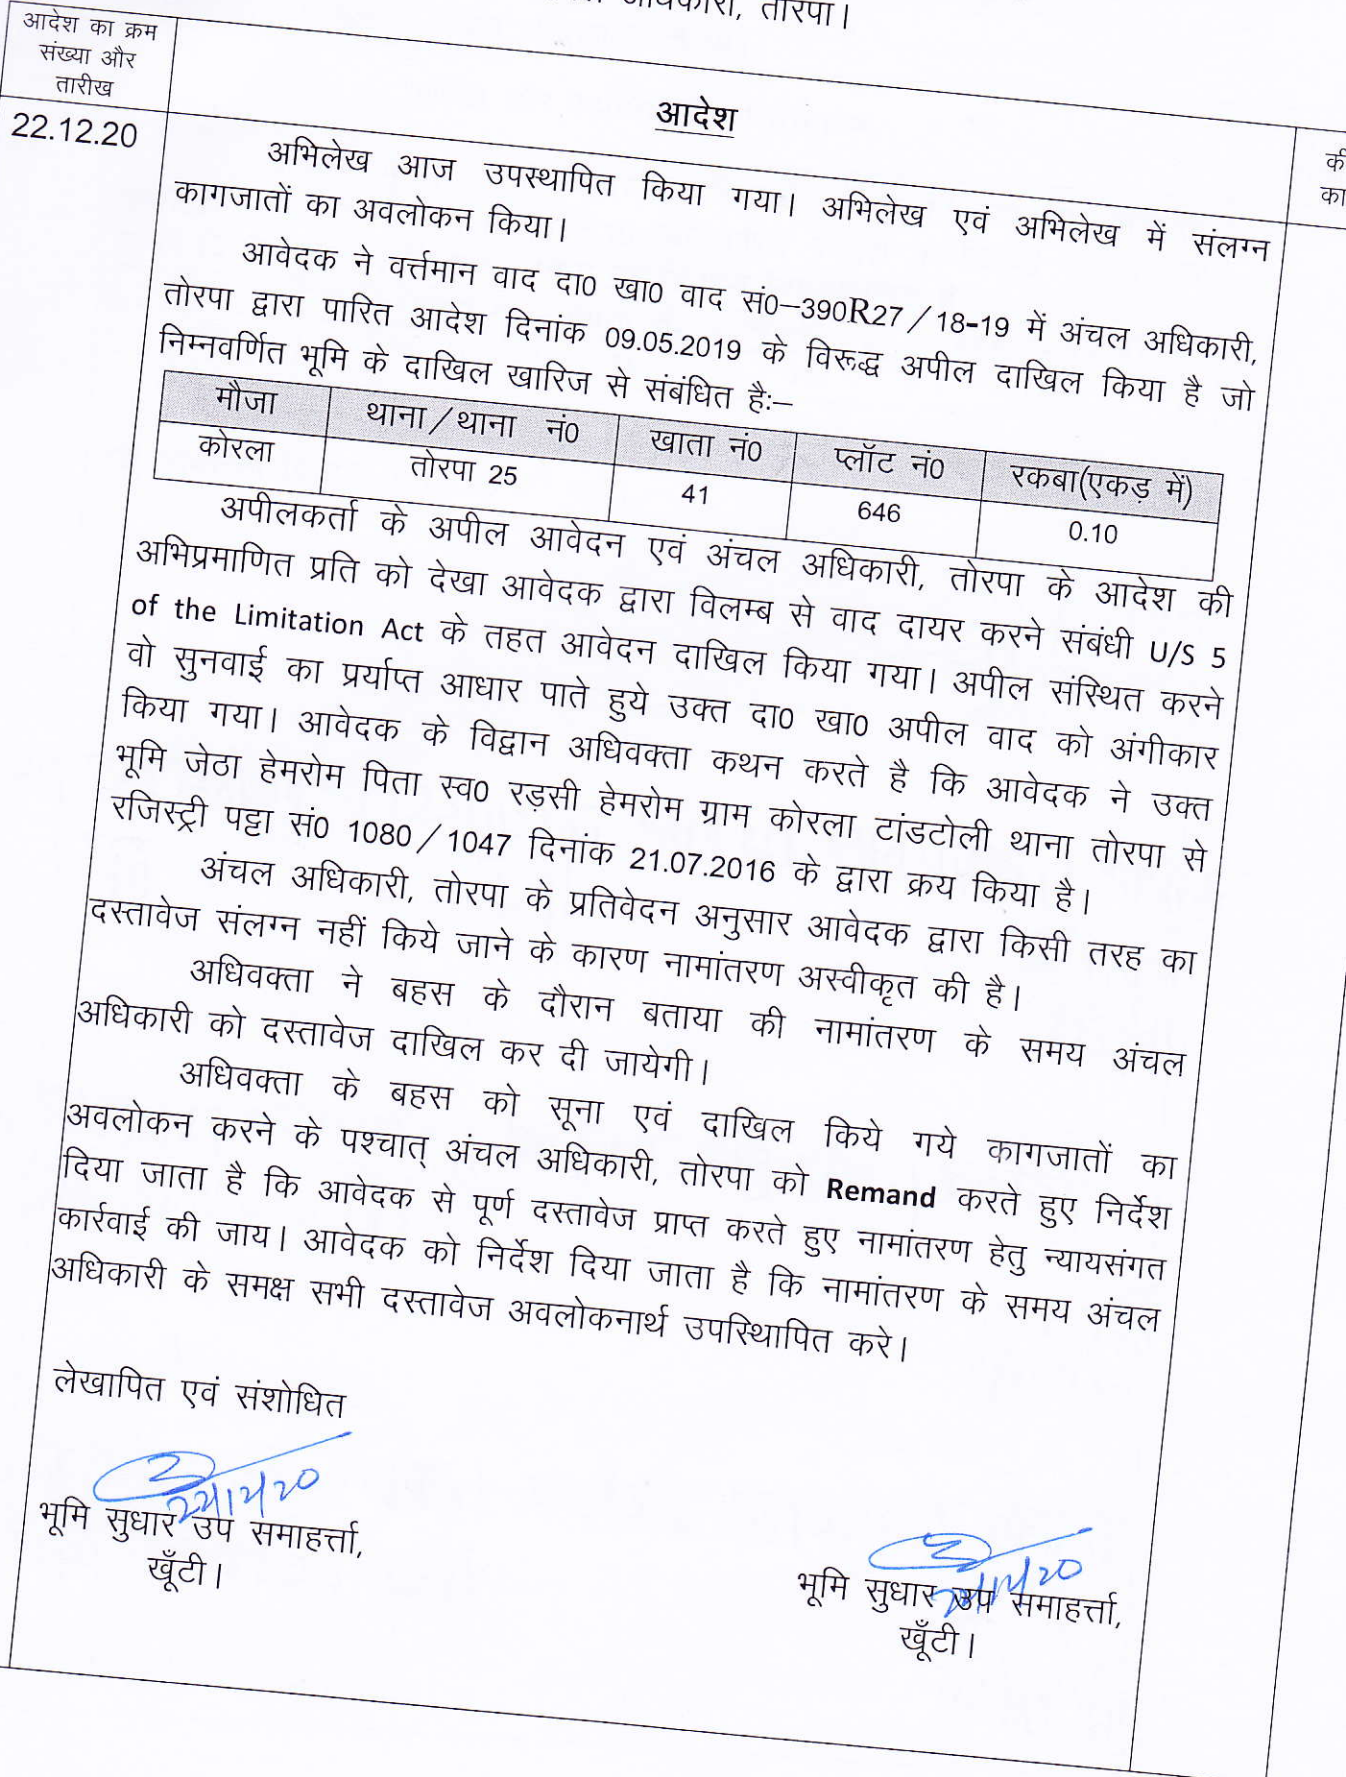 अधिकारी, तोरपा।
आदेश का क्रम
संख्या और
तारीख
आदेश
22.12.20
की
का
अभिलेख आज उपस्थापित किया गया। अभिलेख एवं अभिलेख में संलग्न
कागजातों का अवलोकन किया।
आवेदक ने वर्त्तमान वाद दा0 खा0 वाद सं0–390R27/18-19 में अंचल अधिकारी,
तोरपा द्वारा पारित आदेश दिनांक 09.05.2019 के विरूद्ध अपील दाखिल किया है जो
निम्नवर्णित भूमि के दाखिल खारिज से संबंधित है:–
मौजा थाना/थाना नं0 खाता नं0 प्लॉट नं0 रकबा(एकड़ में)
कोरला तोरपा 25 41 646 0.10
अपीलकर्ता के अपील आवेदन एवं अंचल अधिकारी, तोरपा के आदेश की
अभिप्रमाणित प्रति को देखा आवेदक द्वारा विलम्ब से वाद दायर करने संबंधी U/S 5
of the Limitation Act के तहत आवेदन दाखिल किया गया। अपील संस्थित करने
वो सुनवाई का प्रर्याप्त आधार पाते हुये उक्त दा0 खा0 अपील वाद को अंगीकार
किया गया। आवेदक के विद्वान अधिवक्ता कथन करते है कि आवेदक ने उक्त
भूमि जेठा हेमरोम पिता स्व0 रड़सी हेमरोम ग्राम कोरला टांडटोली थाना तोरपा से
रजिस्ट्री पट्टा सं0 1080/1047 दिनांक 21.07.2016 के द्वारा क्रय किया है।
अंचल अधिकारी, तोरपा के प्रतिवेदन अनुसार आवेदक द्वारा किसी तरह का
दस्तावेज संलग्न नहीं किये जाने के कारण नामांतरण अस्वीकृत की है।
अधिवक्ता ने बहस के दौरान बताया की नामांतरण के समय अंचल
अधिकारी को दस्तावेज दाखिल कर दी जायेगी।
अधिवक्ता के बहस को सूना एवं दाखिल किये गये कागजातों का
अवलोकन करने के पश्चात् अंचल अधिकारी, तोरपा को Remand करते हुए निर्देश
दिया जाता है कि आवेदक से पूर्ण दस्तावेज प्राप्त करते हुए नामांतरण हेतु न्यायसंगत
कार्रवाई की जाय। आवेदक को निर्देश दिया जाता है कि नामांतरण के समय अंचल
अधिकारी के समक्ष सभी दस्तावेज अवलोकनार्थ उपस्थिापित करे।
लेखापित एवं संशोधित
22/12/20
भूमि सुधार उप समाहर्त्ता,
खूँटी।
22/12/20
भूमि सुधार उप समाहर्त्ता,
खूँटी।